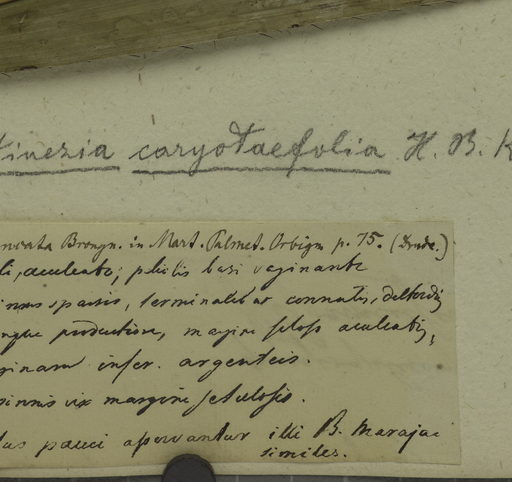 tinezia caryotaefolia H. B. K
Brongn. in Mart. Palmet. Orbign p. 75. (Drude.)
aculeato; petiolis basi vaginante
sparsis, terminalibus connatis, deltoid
productiore, margine setoso aculeatis,
ginam infer. argenteis.
pinnis vix margine setulosis.
pauci asservantur illi B. Maraja
similes.